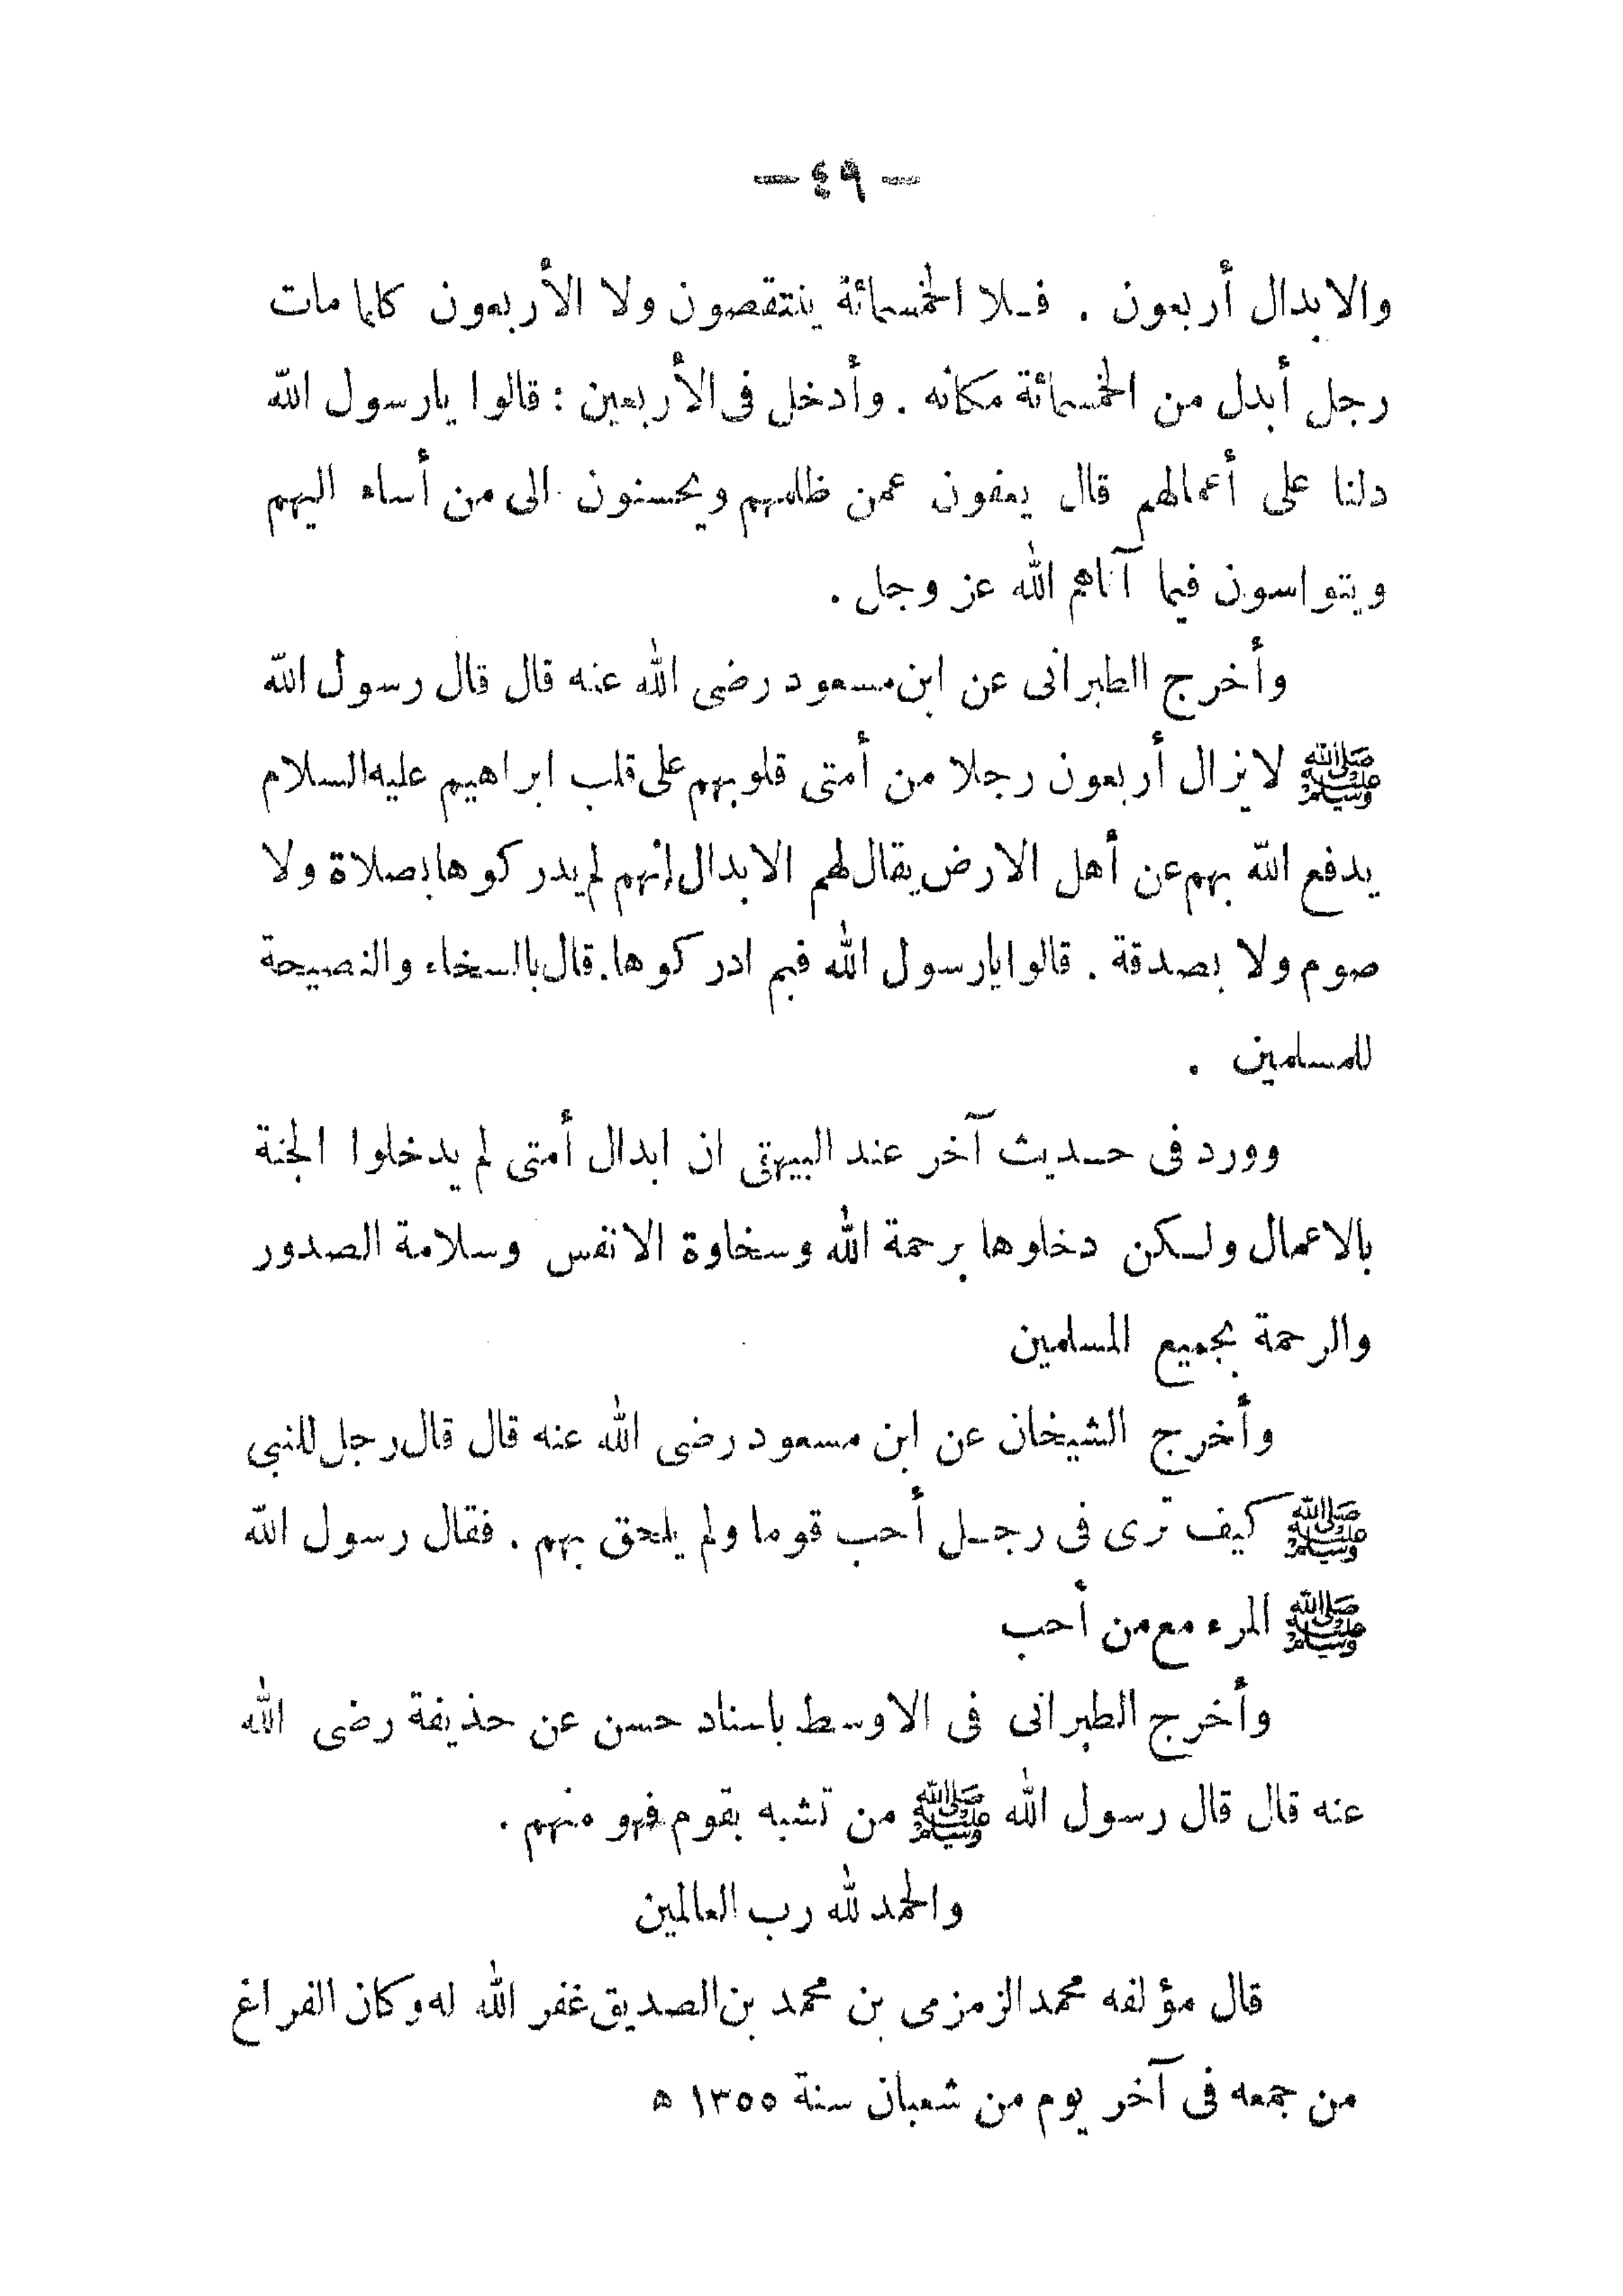 — ٤٩ —
والابدال أربعون . فلا الخمسمائة ينتقصون ولا الأربعون كلما مات
رجل أبدل من الخمسمائة مكانه . وأدخل فى الأربعين : قالوا يارسول الله
دلنا على أعمالهم قال يعفون عمن ظلمهم ويحسنون الى من أساء اليهم
ويتواسون فيما آتاهم الله عز وجل .
وأخرج الطبرانى عن ابن مسعود رضى الله عنه قال قال رسول الله
ﷺ لا يزال أربعون رجلا من أمتى قلوبهم على قلب ابراهيم عليه السلام
يدفع الله بهم عن أهل الارض يقال لهم الابدال إنهم لم يدركوها بصلاة ولا
صوم ولا بصدقة . قالوا يارسول الله فبم ادركوها. قال بالسخاء والنصيحة
للمسلمين .
وورد فى حديث آخر عند البيهقى ان ابدال أمتى لم يدخلوا الجنة
بالاعمال ولكن دخلوها برحمة الله وسخاوة الانفس وسلامة الصدور
والرحمة بجميع المسلمين
وأخرج الشيخان عن ابن مسعود رضى الله عنه قال قال رجل للنبى
ﷺ كيف ترى فى رجل أحب قوما ولم يلحق بهم . فقال رسول الله
ﷺ المرء مع من أحب
وأخرج الطبرانى فى الاوسط باسناد حسن عن حذيفة رضى الله
عنه قال قال رسول الله ﷺ من تشبه بقوم فهو منهم .
والحمد لله رب العالمين
قال مؤلفه محمد الزمزمى بن محمد بن الصديق غفر الله له وكان الفراغ
من جمعه فى آخر يوم من شعبان سنة ١٣٥٥ ه